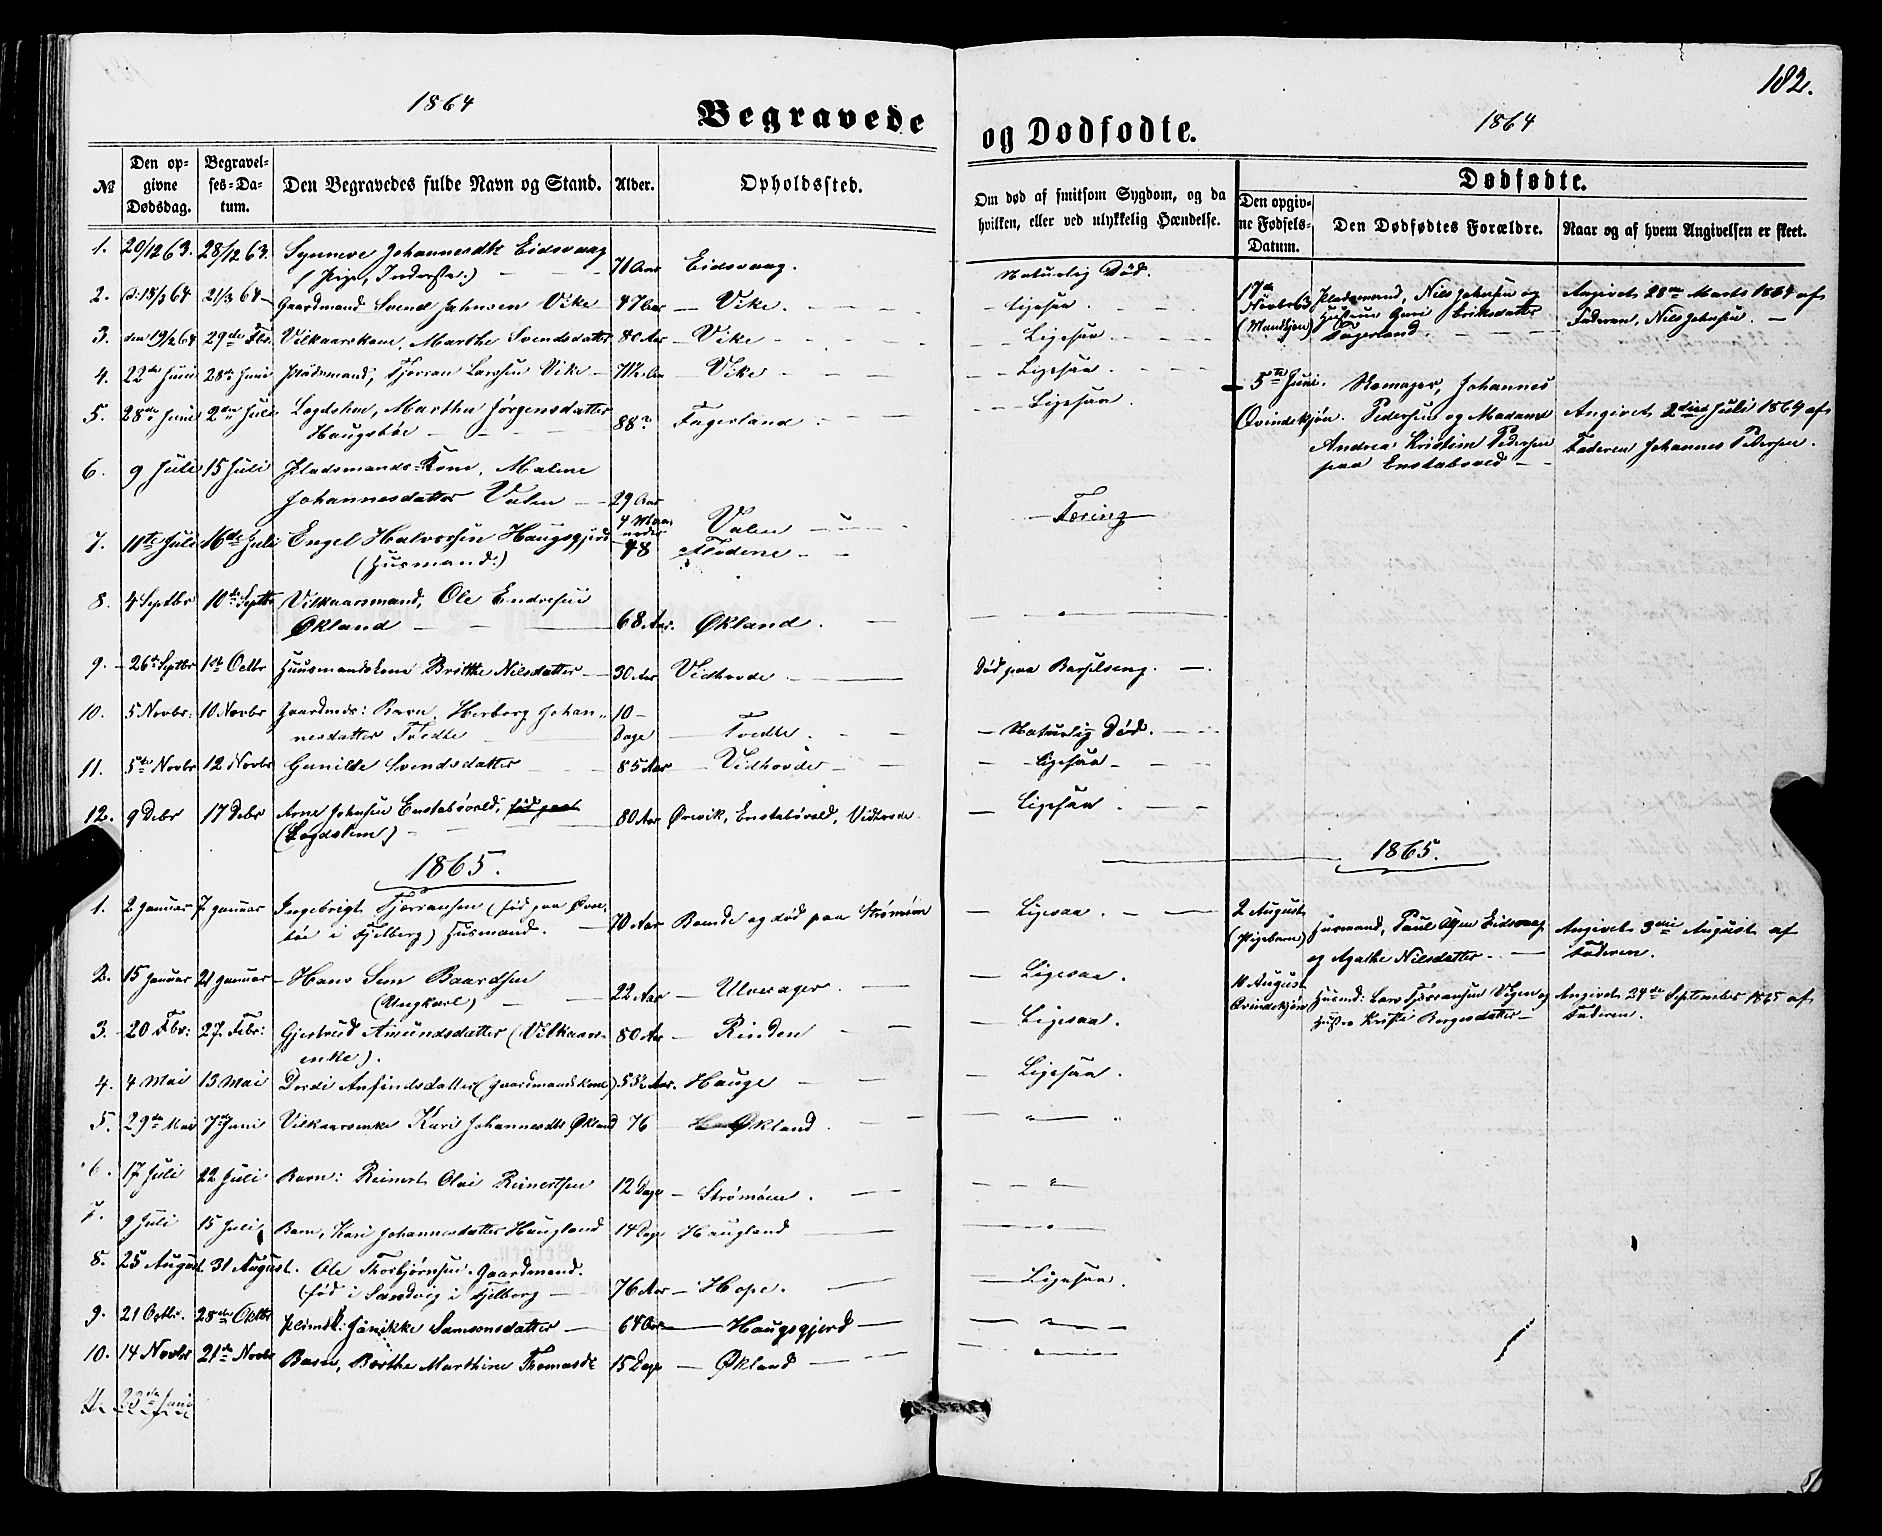 182.
1864
Begravede
og Dødfødte.
1864
№
Den op-
givne
Dødsdag.
Begravel-
ses-Da-
tum.
Den Begravedes fulde Navn og Stand.
Alder.
Opholdssted.
Om død af smitsom Sygdom, og da
hvilken, eller ved ulykkelig Hændelse.
Dødfødte.
Den opgiv-
ne Fødsels-
Datum.
Den Dødfødtes Forældre.
Naar og af hvem Angivelsen er skeet.
1. 20/12 63. 28/12 63. Synneve Johannesdtr Eidsvaag 71 Aar Eidsvaag. Naturlig Død.
2. 15/3 64 21/3 64 Gaardmand Svend Johnsen Vike 47 Aar Vike Ligesaa
3. den 19/2 64 29de Fbr. Vilkaarskone, Marthe Svendsdatter 80 Aar Vike Ligesaa
4. 22de Juni 28de Juni Pladsmand, Tjerran Larsen Vike Vike Ligesaa
5. 28de Juni 2den Juli Lægdslem, Martha Jørgensdatter 88 Fagerland Ligesaa
Haugsbøe
6. 9 Juli 15 Juli Pladsmands Kone, Malene
Johannesdatter Valen 29 Aar Valen Tæring
7. 11te Juli 16de Juli Engel Halvorsen Haugsgjerd 48 Flødene
(Husmand.)
8. 4 Septbr 10de Septbr Vilkaarsmand, Ole Endresen
Økland 68 Aar. Økland.
9. 26de Septbr 1ste Octbr Huusmandskone Brithe Nilsdatter 30 Aar Vidhovde Død paa Barselseng.
10. 5 Novbr: 10 Novbr Gaardmds: Barn, Herborg Johan-
nesdatter Tvedte 10 Dage Tvedte. Naturlig Død.
11. 5te Novbr 12 Novbr Gunilde Svendsdatter 85 Aar Vidhovde Ligesaa
12. 9 Debr 17 Debr Arne Johnsen Enstabøvold, 80 Aar Ørevik, Enstabøvold, Vidhovde. Ligesaa
(Lægdslem)
17de
(Mandkjøn) Pladsmand, Nils Johnsen og
Hustrue Guri Eriksdatter
Fagerland. Angivet 28de Marts 1864 af
Faderen, Nils Johnsen.
5te Juni. Johannes
Qvindekjøn. Pedersen og Madame
Andrea Kristine Pedersen
paa Enstabøvold Angivet 2den Juli 1864 af
Faderen Johannes Pedersen.
1865.
1865.
1. 2 Januar 7 Januar Ingebrigt Tjerransen (født paa
i Fjelberg) Husmand. 70 Aar Boende og død paa Strømøen Ligesaa
2. 15 Januar 21 Januar Hans Sem Baardsen
(Ungkarl) 22 Aar Ulverager. Ligesaa
3. 20 Fbr. 27. Febr: Gjertrud Amundsdatter (Vilkaars- 80 Aar Rinden Ligesaa
enke).
4. 4 Mai 13 Mai Dordi Anfindsdatter (Gaardmandskone) 55½ Aar. Hauge Ligesaa
5. 29de Mai 7de Juni Vilkaarsenke Kari Johannesdtr Økland 76 Økland
6. 17 Juli 22 Juli Barn: Reinert Olai Reinertsen 12 Dage Strømøen.
7. 9 Juli 15 Juli Barn, Kari Johannesdatter Haugland 14 Dage Haugland
8. 25 August 31 August. Ole Thorbjørnsen. Gaardmand.
(født i Sandvig i Fjelberg 76 Aar Hope. Ligesaa.
9. 21 Octbr. 28de Oktbr Jannikke Samsonsdatter 64 Aar Haugsgjerd
10. 14 Novbr 21de Novbr Barn, Berthe Marthine Thomasdtr 15 Dage Økland
11. 23de Juni
2 August
(Pigebarn) Husmand, Paul Eidsvaag
og Agathe Nilsdatter. Angivet 3die August af
Faderen.
11 August
Qvindekjøn Husmd: Lars Tjerransen og
Hustru Kristi Borgesdatter Angivet 24de September 1865 af
Faderen.